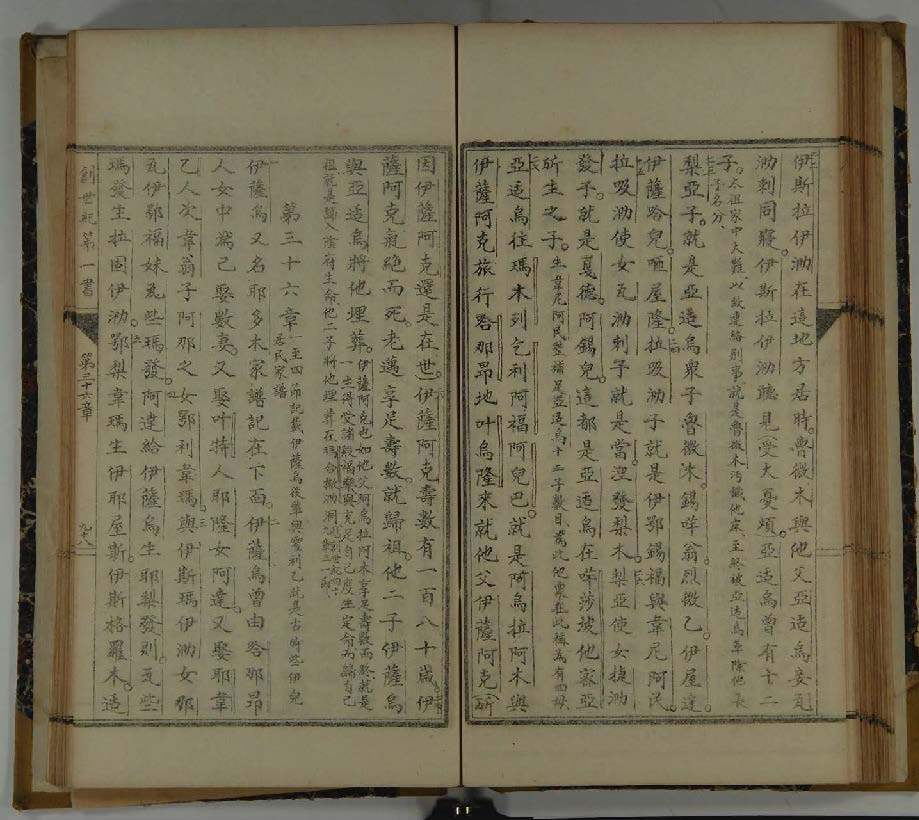 伊斯拉伊泐在這地方居時。魯微木與他父亞适烏妾瓦
泐剌同寢。伊斯拉伊泐聽見受大憂煩。亞适烏曾有十二
子。太祖家中大難、以致連絡别事、就是魯微木汚衊他床、至終被亞适烏革除他長
子名分、
梨亞子。就是亞适烏衆子魯微木。錫哶翁烈微乙。伊屋達。
伊薩咯兒。哂屋隆。拉吸泐子就是伊鄂錫福與韋尼阿民
拉吸泐使女瓦泐剌子就是當。湼發梨木。梨亞使女捷泐
發子。就是戛德。阿錫兒。這都是亞适烏在哶莎坡他密亞
所生之子。生韋尼阿民整補足亞适烏十二子數目、爲此他衆在此稱爲有四母
亞适烏往瑪木列乞利阿福阿兒巴。就是阿烏拉阿木與
伊薩阿克旅行咯那昻地叶烏隆來就他父伊薩阿克。所
因伊薩阿克還是在世。伊薩阿克壽數有一百八十歲伊
薩阿克氣絶而死。老邁享足壽數。就歸祖。他二子伊薩烏
與亞适烏將他埋葬。伊薩阿克也如他父阿烏拉阿木享足壽數而歿、就是
一生得受諸般福樂與充足自己度生定命而歸自己
祖就是歸入陰府生命、他二子將他埋葬在瑪合撇泐洞
第三十六章 一至四節記載伊薩烏後輩與霍利乙就是古時些伊兒
居民家譜
伊薩烏又名耶多木家譜記在下面。伊薩烏曾由咯那昻
人女中爲己娶數妻。又娶叶特人耶隆女阿達。又娶耶韋
乙人次韋翁子阿那之女鄂利韋瑪。與伊斯瑪伊泐女那
瓦伊鄂福妹瓦些瑪發。阿達給伊薩烏生耶梨發則。瓦些
瑪發生拉固伊泐。鄂梨韋瑪生伊耶屋斯。伊斯格羅木。适
創世紀第一書
第三十六章
九十八